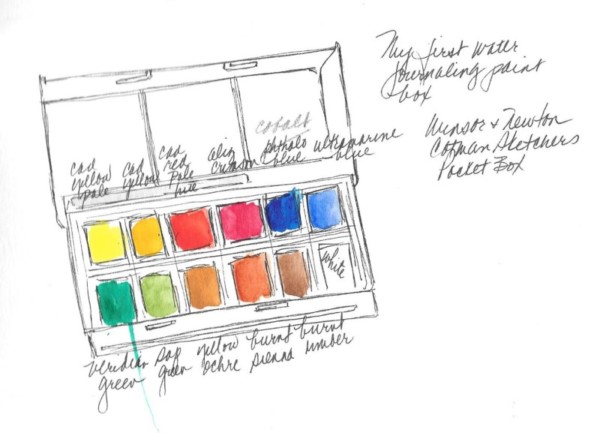 My first water
journaling paint
box
Winsor & Newton
Cotman Sketchers
Pocket Box
cad
yellow
pale
cad
yellow
cad
red
pale
hue
aliz
crimson
cobalt
phthalo
blue
ultramarine
blue
white
veridian
green
sap
green
yellow
ochre
burnt
sienna
burnt
umber